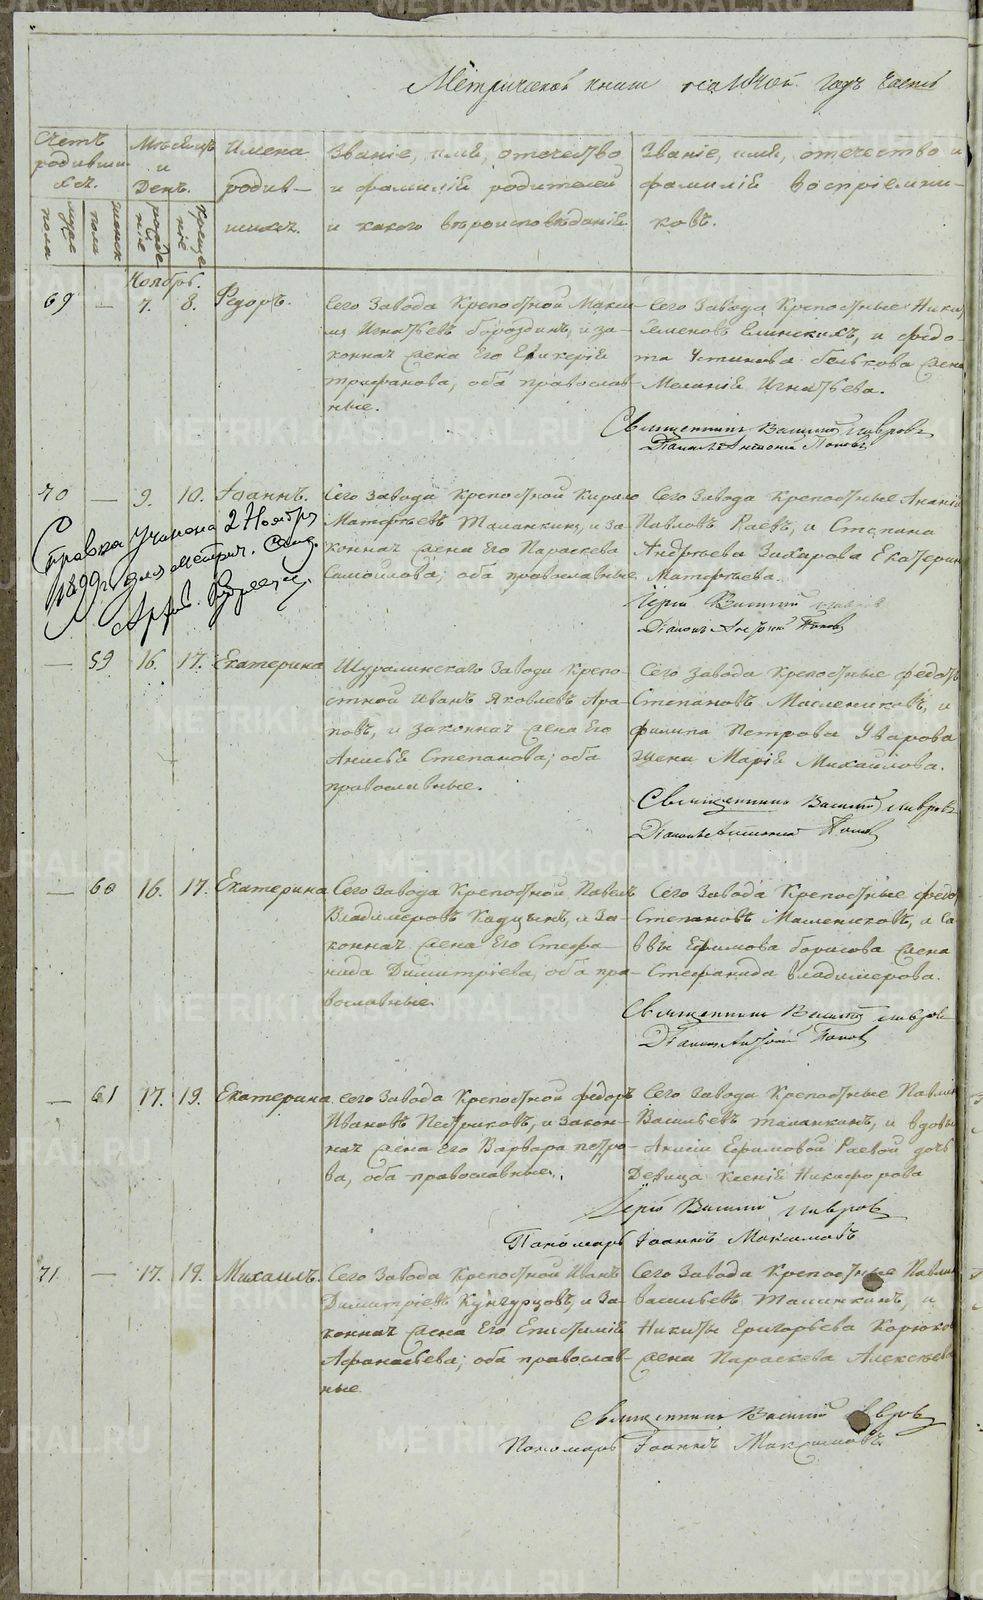 Метрической книги на годъ часть
Счетъ родивши хся.
Мѣсяцъ и День.
Имена родив- шихся.
Званіе, имя, отечество и фамилія родителей и какого вѣроисповѣданія
Званіе, имя, отечество и фамилія воспріемни- ковъ.
муже пола
женск пола
рожде ніе
креще ніе
Ноябрь.
69 — 7. 8. Федоръ.
Сего Завода Крепостной Макси
мъ Игнатьевъ бороздинъ, и за-
конная жена Его
трифанова, оба православ-
ные.
Сего Завода Крепостные Ники
Семеновъ Елинскихъ, и федо-
та Устинова белькова жена
Меланія Игнатьева.
Священникъ Василій Лавровъ
Діаконъ Антоній Поповъ
70 — 9. 10. Іоаннъ.
Сего Завода Крепостной Кирило
Матфеевъ Таланкинъ, и за
конная жена Его Параскева
Самойлова; оба православные.
Сего Завода Крепостные Ананій
Павловъ Раевъ, и Степана
Андреева Захарова Екатерин
Матфеева.
Іерей Василій Лавровъ
Діаконъ Антоній Поповъ
Справка учинена 2 Ноября
1899 г. для метрич. Свид.
Арх.
— 59 16. 17. Екатерина
Шуралинскаго Завода Крепо-
стной Иванъ Яковлевъ Ара-
повъ, и законная жена Его
Анисья Степанова; оба
православные.
Сего Завода Крепостные федотъ
Степановъ Маслениковъ, и
филипа Петрова Уварова
жена Марія Михайлова.
Священникъ Василій Лавровъ
Діаконъ Антоній Поповъ
— 60 16. 17. Екатерина
Сего Завода Крепостной Павелъ
Владимеровъ Кадцынъ, и за-
конная жена Его Стефа-
нида Димитріева, оба пра-
вославные.
Сего Завода Крепостные федо
Степановъ Маслениковъ, и Са
ввы Ефимова борисова жена
Стефанида владимерова.
Священникъ Василій Лавровъ
Діаконъ Антоній Поповъ
— 61 17. 19. Екатерина
сего Завода Крепостной федоръ
Ивановъ Пестриковъ, и Закон-
ная жена его Варвара петро
ва, оба православные.
Сего Завода Крепостные Павлин
Васильевъ таланкинъ, и вдовы
Анисіи Ефимовой Раевой дочь
Девица Ксенія Никифорова
Іерей Василій Лавровъ
Пономарь Іоаннъ Максимовъ
71 — 17. 19. Михаилъ.
Сего Завода Крепостной Иванъ
Димитріевъ Кунгурцовъ, и За-
конная жена Его Епистимія
Афанасьева; оба православ-
ные
Сего Завода Крепостные Павлин
Васильевъ Таланкинъ, и
Никиты Григорьева Корюков
жена Параскева Алексеева
Священникъ Василій Лавровъ
Пономарь Іоаннъ Максимовъ
METRIKI.GASO-URAL.RU